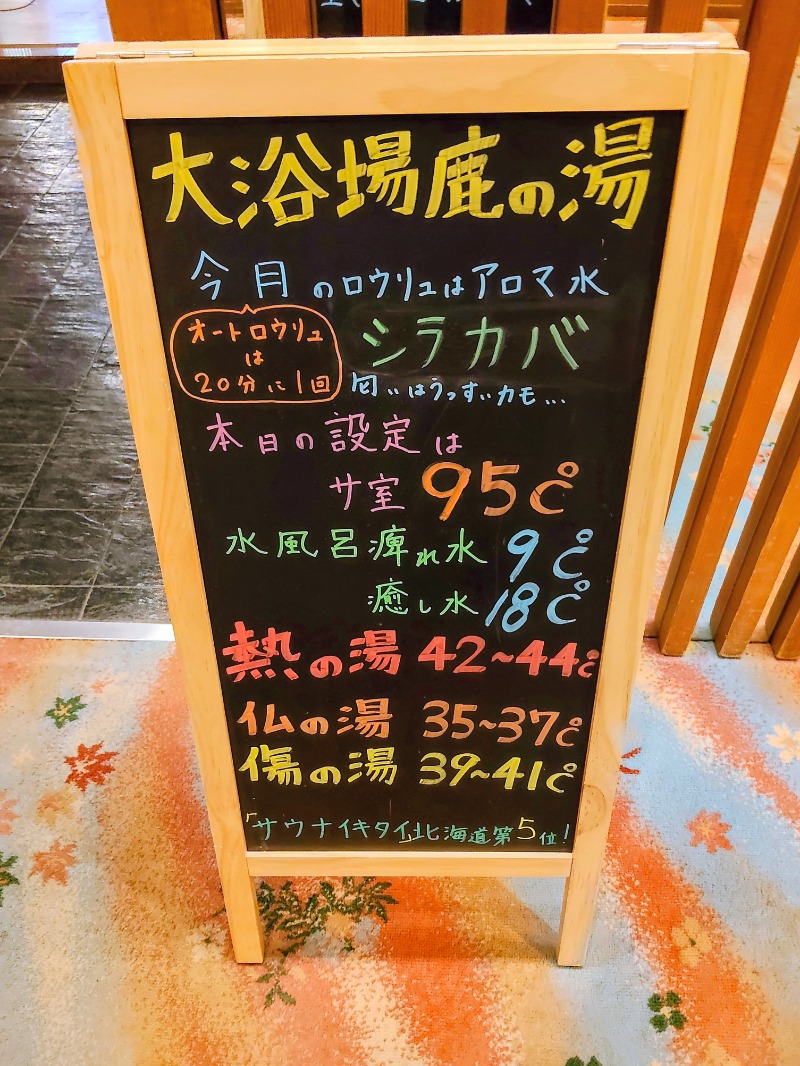 大浴場鹿の湯
今月のロウリュはアロマ水
オートロウリュ
は
20分に1回
シラカバ
匂いはうっすいカモ...
本日の設定は
サ室 95℃
水風呂痺れ水 9℃
癒し水 18℃
熱の湯 42~44℃
仏の湯 35~37℃
傷の湯 39~41℃
「サウナイキタイ」北海道第5位!